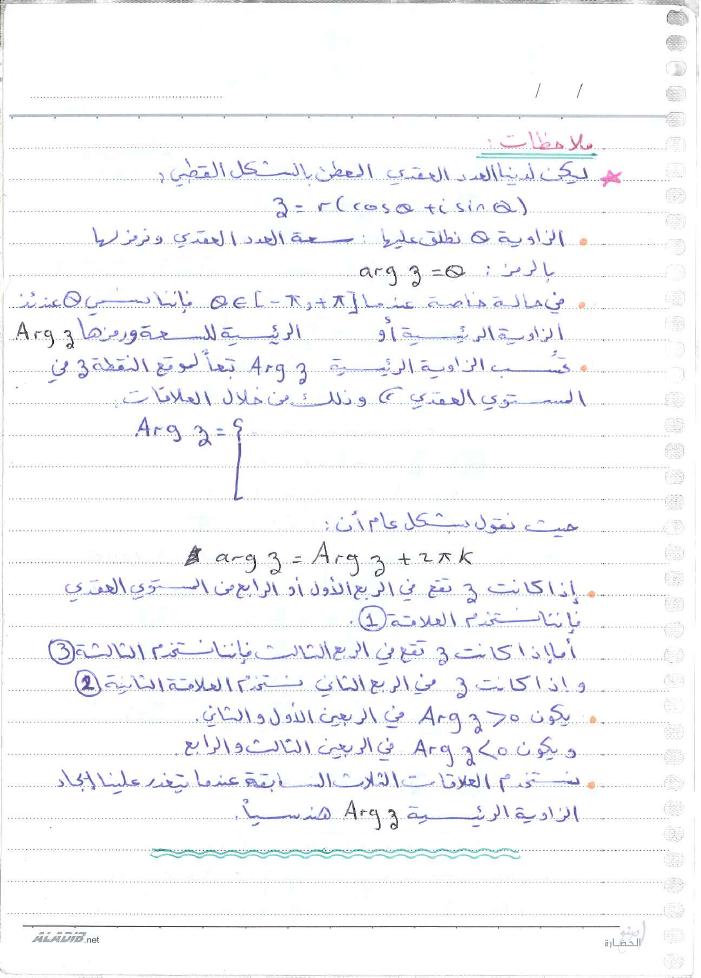 / /
ملاحظات :
ليكن لدينا العدد العقدي المعطى بالشكل القطبي :
z = r(cosθ + i sinθ)
الزاوية θ نطلق عليها : سعة العدد العقدي ونرمز لها
بالرمز : arg z = θ
في حالة خاصة عندما θ∈[-π,+π] فإننا نسمي θ عندئذ
الزاوية الرئيسية أو الرئيسية للسعة ورمزها Arg z
تحسب الزاوية الرئيسية Arg z تبعاً لموقع النقطة z في
المستوي العقدي وذلك من خلال العلاقات
Arg z = {
حيث نقول بشكل عام أن :
arg z = Arg z + 2πk
إذا كانت z تقع في الربع الأول أو الرابع من المستوي العقدي
فإننا نستخدم العلاقة ①.
أما إذا كانت z تقع في الربع الثالث فإننا نستخدم الثالثة ③
و إذا كانت z في الربع الثاني نستخدم العلاقة الثانية ②
يكون Arg z > 0 في الربعين الأول والثاني.
و يكون Arg z < 0 في الربعين الثالث والرابع.
نستخدم العلاقات الثلاث السابقة عندما يتعذر علينا إيجاد
الزاوية الرئيسية Arg z هندسياً.
ALADIB.net
الحضارة